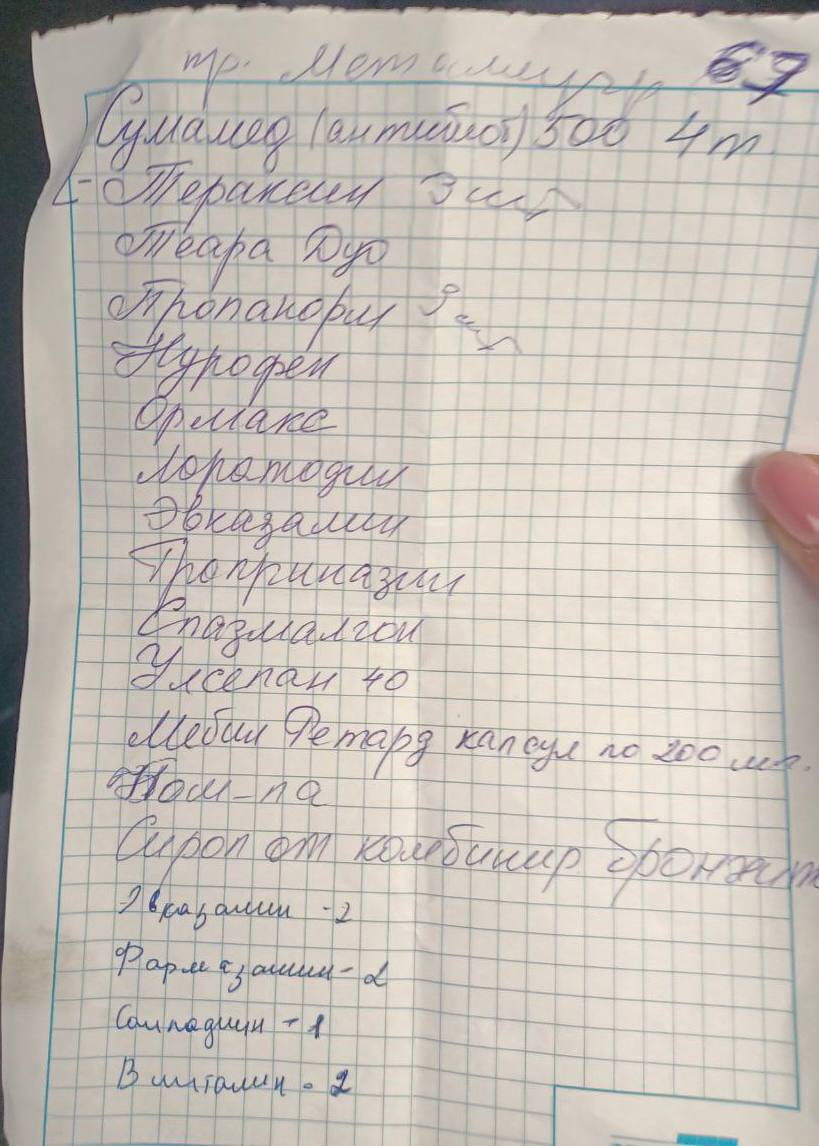 пр. Металлург 67
Сумамед (антибиот) 500 4 т
- Тераксин 3 шт
Теара Дуо
Пропанорм 3 шт
Нурофен
Ормакс
Лоратодин
Эвказалин
Троприназин
Спазмалгон
Улсепан 40
Мебил Ретард капсул по 200 мг.
Ном-па
Сироп от комбинир бронхит
Эвказалин - 2
Фармазолин - 2
Солпадиин - 1
Виталин - 2